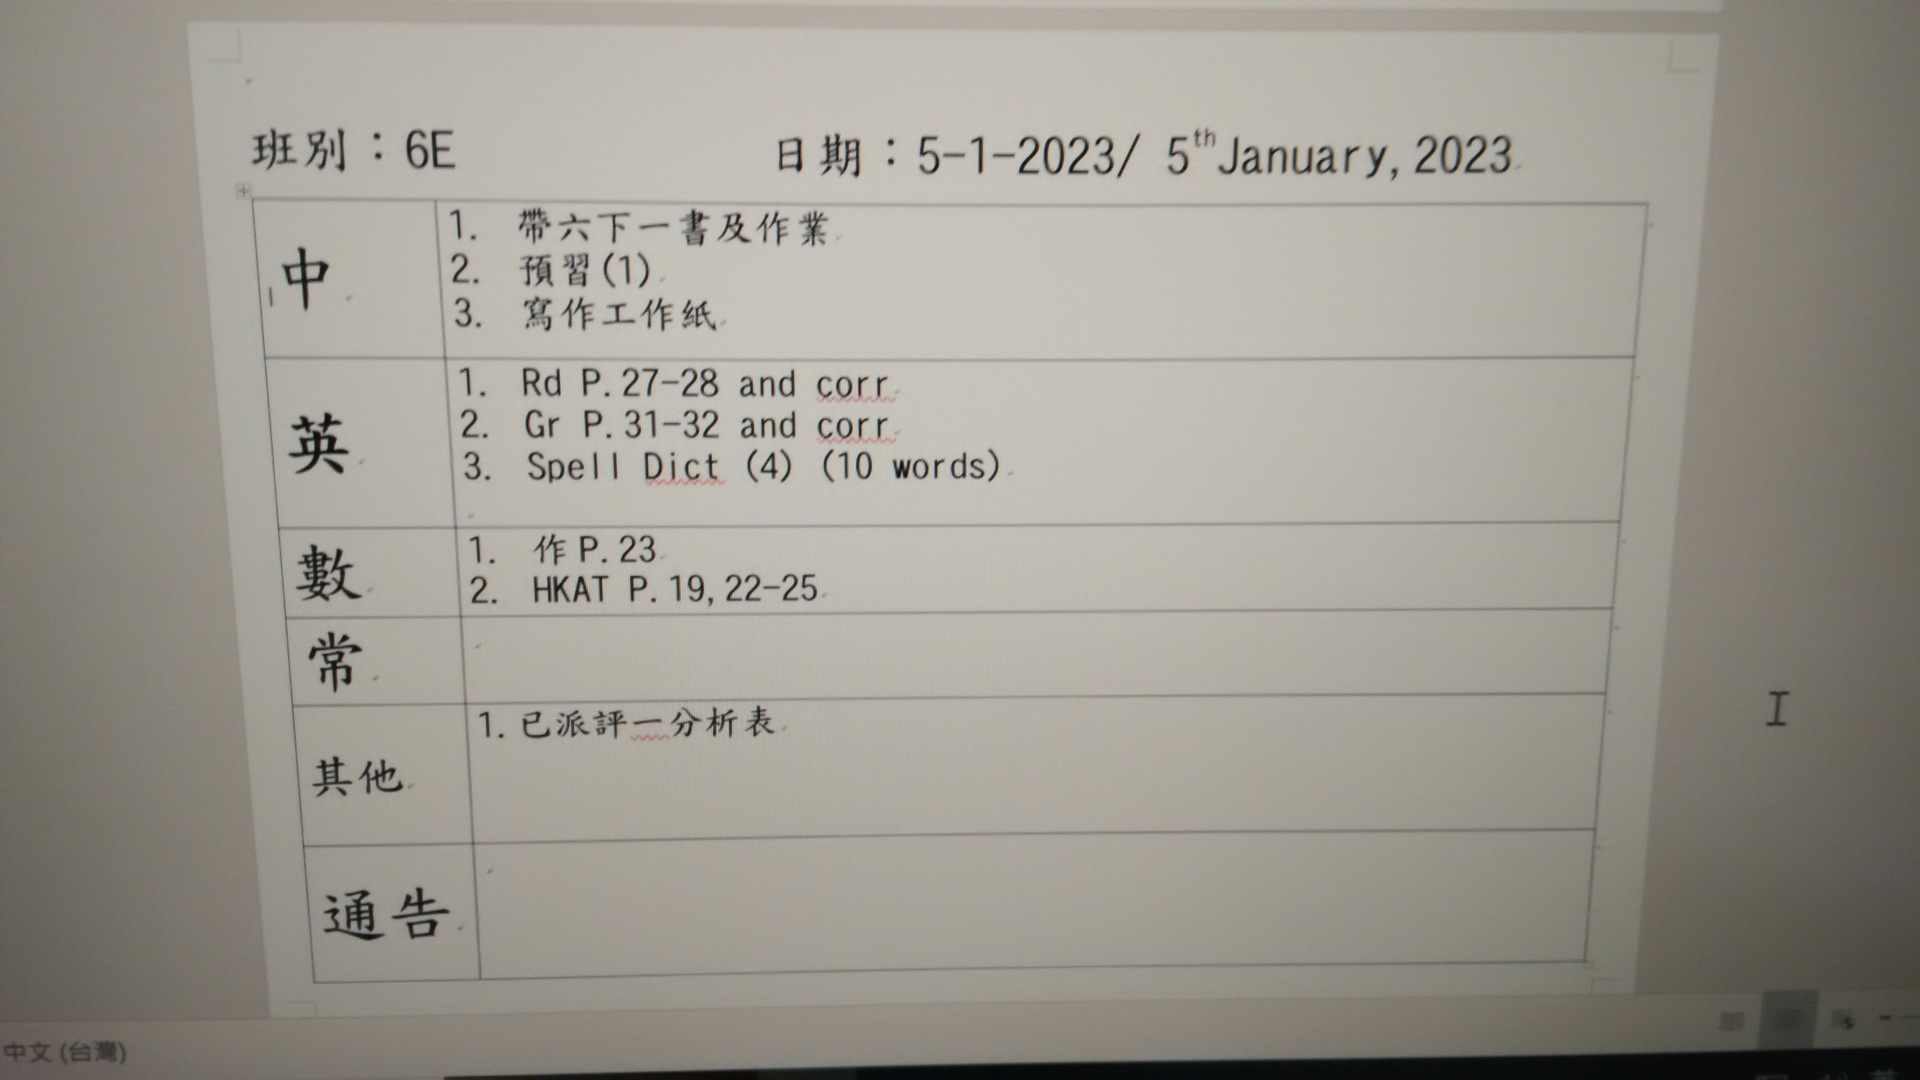 班別：6E 日期：5-1-2023/ 5th January, 2023
中
1. 帶六下一書及作業
2. 預習(1)
3. 寫作工作紙
英
1. Rd P.27-28 and corr
2. Gr P.31-32 and corr
3. Spell Dict (4) (10 words)
數
1. 作 P.23
2. HKAT P.19,22-25
常
其他
1. 已派評一分析表
通告
中文 (台灣)